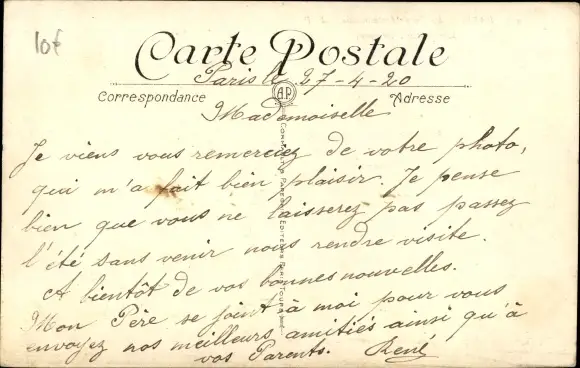 10f
Carte Postale
Paris le 27-4-20
Correspondance
A.P.
Adresse
Mademoiselle
Je viens vous remerciez de votre photo,
qui m'a fait bien plaisir. Je pense
bien que vous ne laisserez pas passez
l'été sans venir nous rendre visite.
A bientôt de vos bonnes nouvelles.
Mon Père se joint à moi pour vous
envoyez nos meilleurs amitiés ainsi qu'à
vos Parents. René